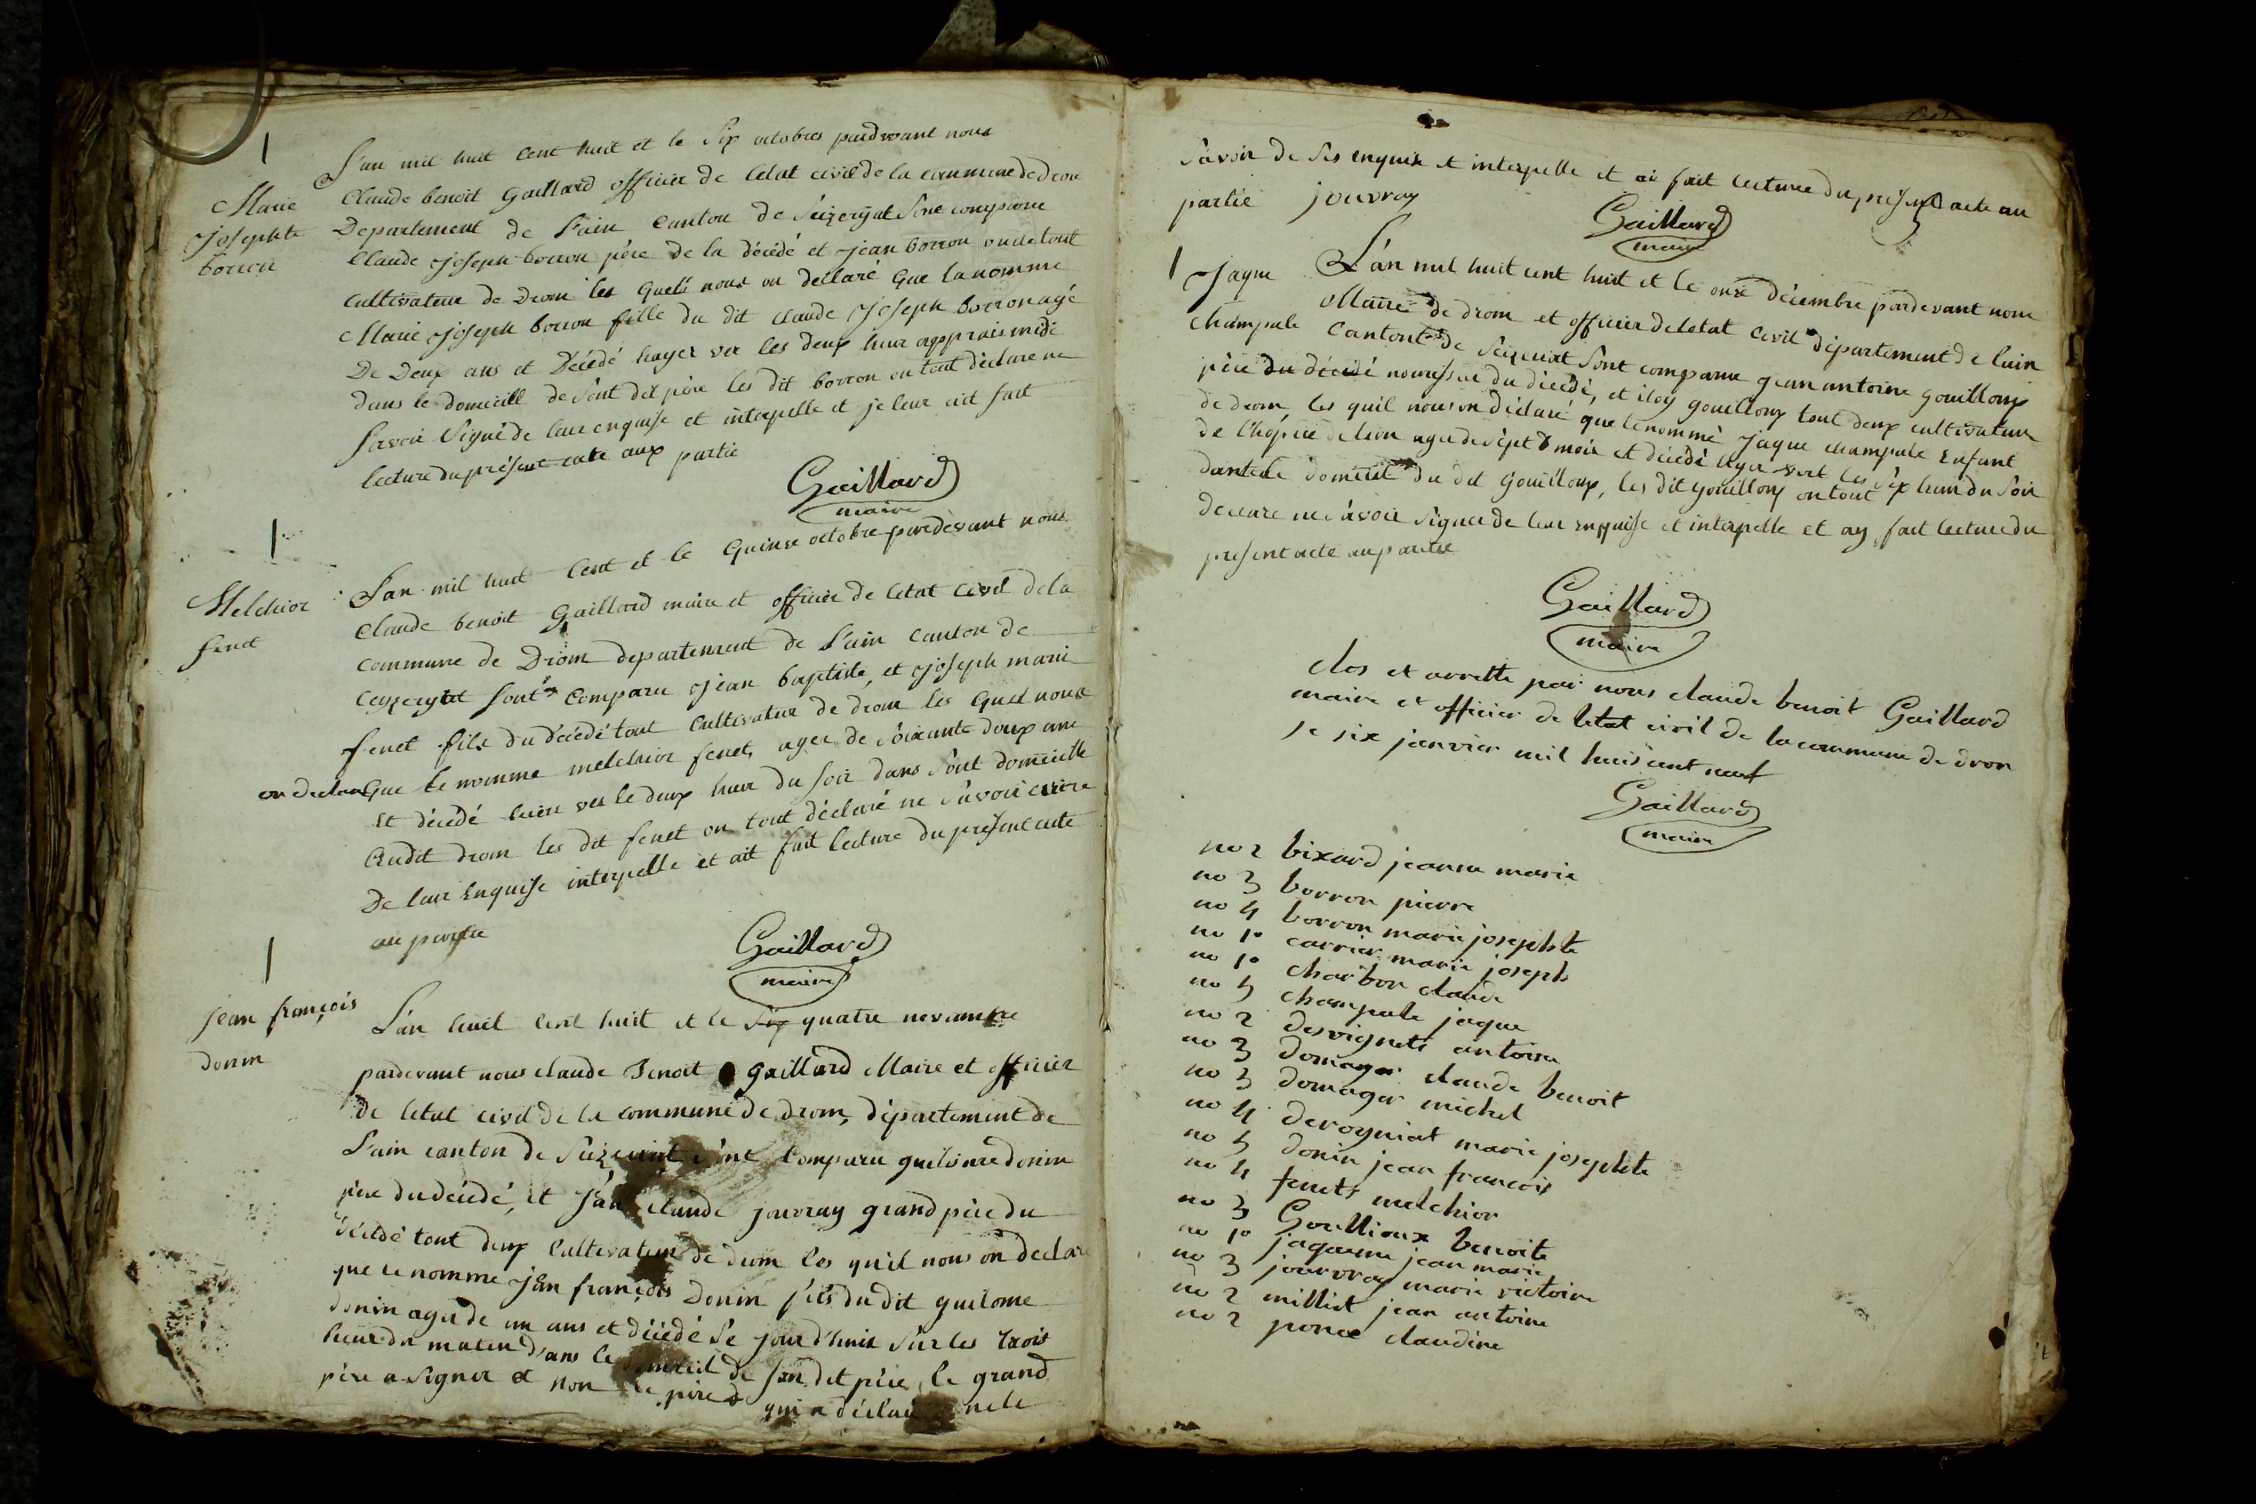 L'an mil huit cent huit et le six octobres pardevant nous
Marie
Josephte
borron
Claude benoit Gaillard officier de letat civil de la commune de drom
Departement de l'ain Canton de Seizeryat sone comparru
Claude Joseph borron père de la décédé et jean borron on de tout
Cultivateur de drom les quels nous on déclaré que la nomme
Marie joseph borron fille du dit claude joseph borron agé
De Deux ans et Décédé hayer ver les deux heur apprais midi
dans le domicill de sont dit père les dit borron on tout déclare ne
savoir signé de leur enquise et interpelle et je leur ait fait
lecture du présent acte aux partie
Gaillard
maire
Melchior
fenet
L'an mil huit cent et le quinse octobre pardevant nous
Claude benoit Gaillard maire et officier de letat civil de la
commune de Drom departement de l'ain canton de
Ceyzeryat sont comparu jean baptiste, et joseph marie
fenet fils du décédé tout cultivateur de drom les quel nous
on declare que le nomme melchior fenet, ager de soixante doux ans
et décédé hier ver le deux heur du soir dans sont domicille
audit drom les dit fenet on tout déclaré ne savoir
De leur Enquise interpelle et ait fait lecture du present acte
au partie
Gaillard
maire
jean françois
donin
L'an huit cent huit et le six quatre novambre
pardevant nous claude Benoit Gaillard Maire et officier
de letat civil de la commune de drom, département de
l'ain canton de sont comparu donin
père du décédé, et jan claude jouvray grand père du
décédé tout deux cultivateur de drom les quil nous on declare
que le nomme jan françois donin fils du dit guilome
donin ager de un ans et décédé se jour d'huit sur les trois
heur du matin dans le domicil de son dit père, le grand
père a signer et non le père qui a déclaré ne le
savoir de ses enquise et interpelle et ai fait lecture du present acte au
partie jouvray
Gaillard
maire
Jaque
champale
L'an mil huit cent huit et le onse décembre pardevant nous
Maire de drom et officier de letat civil département de lain
Canton de Seizeriat sont comparru jean antoine gouilloux
père du décédé nourissur du décédé, et gouilloux tout deux cultivateur
de drom, les quil nous on déclaré que le nommé jaque champale Enfant
de l'hôpice de lion ager de sept mois et décédé hyer vert les six heur du soir
dant le domicil du dit gouilloux, les dit gouilloux on tout
declare ne savoir signer de leur enquise et interpelle et ay fait lecture du
present acte au partie
Gaillard
maire
clos et arrette par nous claude benoit Gaillard
maire et officier de letat civil de la commune de drom
le six janvier mil huit cent neuf
Gaillard
maire
no 2 bixard jeanne marie
no 3 borron pierre
no 4 borron marie josephte
no 1o carrier marie joseph
no 1o charbon claude
no 5 champale jaque
no 2 desvignets antoine
no 3 domager claude benoit
no 3 domager michel
no 4 derogniat marie josephte
no 5 donin jean francois
no 4 fenets melchior
no 3 Gouillioux benoite
no 1o jean marie
no 3 jouvray marie victoire
no 2 milliet jean antoine
no 2 ponce claudine